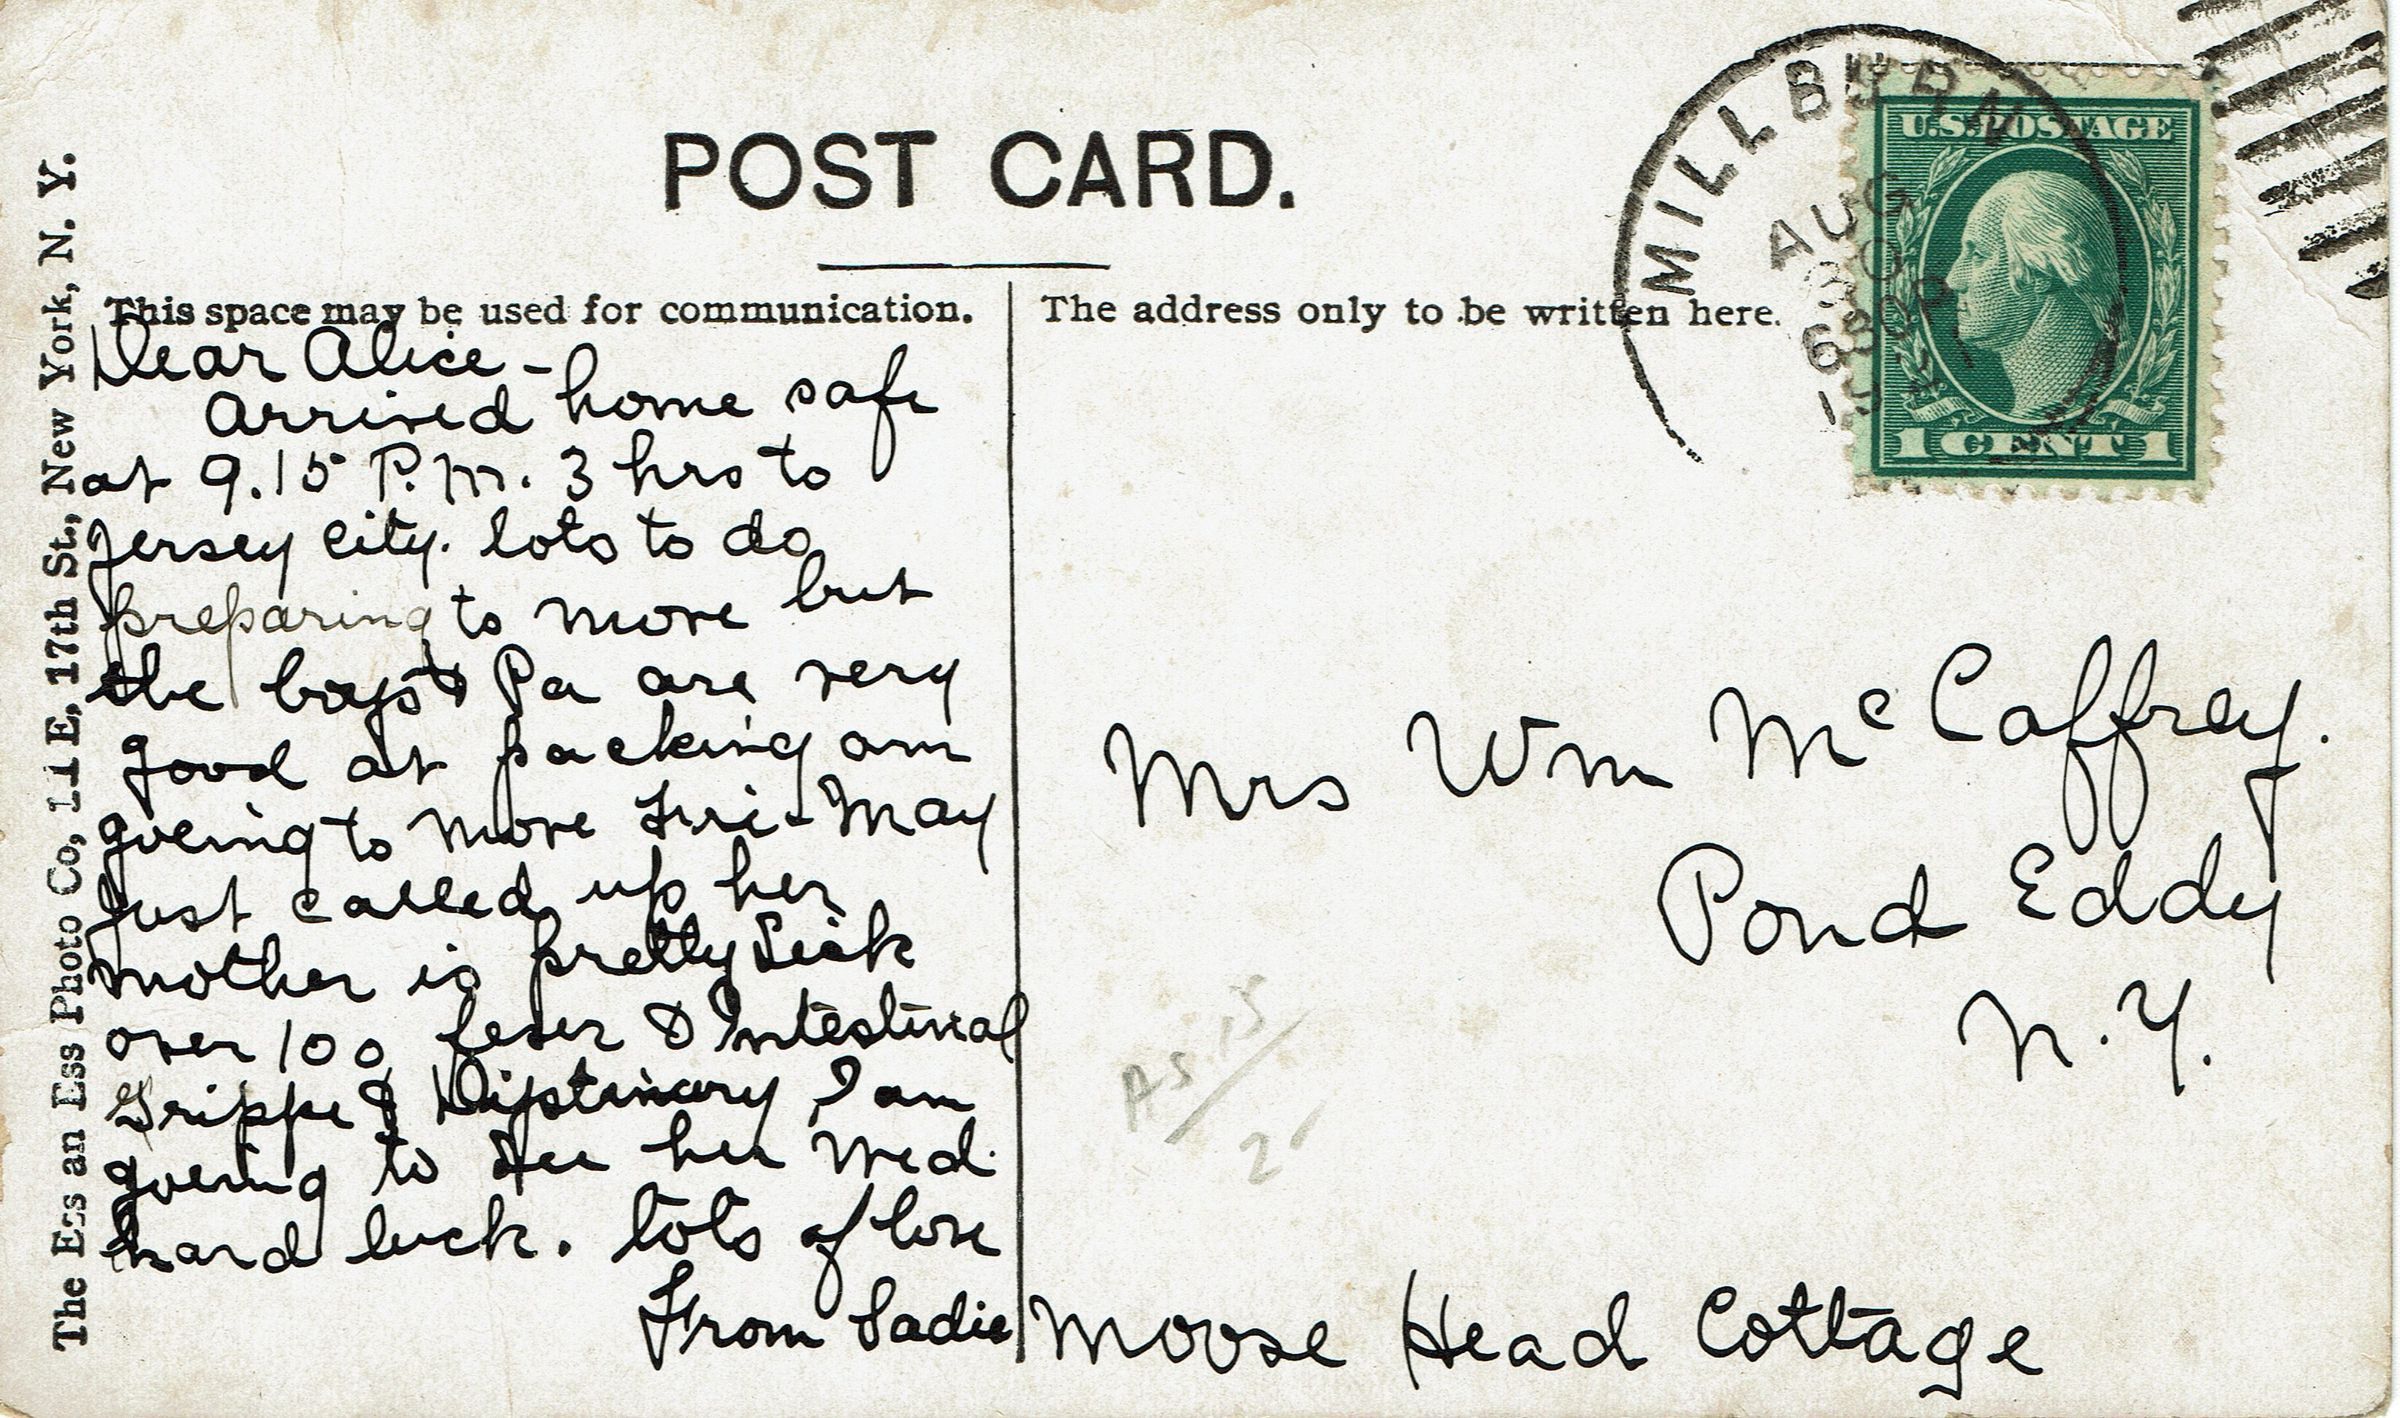 POST CARD.
This space may be used for communication.
The address only to be written here.
MILLBURN
AUG
630P
U.S. POSTAGE
1 CENT 1
Dear Alice -
Arrived home safe
at 9.15 P.M. 3 hrs to
Jersey City. lots to do
preparing to move but
the boys & Pa are very
good at packing am
goeing to move Fri - May
Just called up her
mother is pretty Sick
over 100 fever & Intestinal
Grippe &
I am
goeing to See her Wed.
hard luck. lots of love
From Sadie
Mrs Wm McCaffrey.
Pond Eddy
N.Y.
Moose Head Cottage
AS 15/2
The Ess an Ess Photo Co, 11 E, 17th St., New York, N. Y.